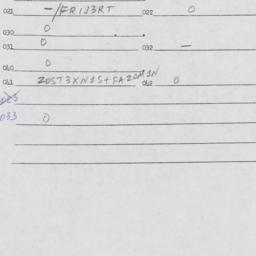 021 —/FR113RT 022 0
030 0
031 0 032 —
040 0
041 20ST3XN1S+FA20 1N 042 0
023
033 0